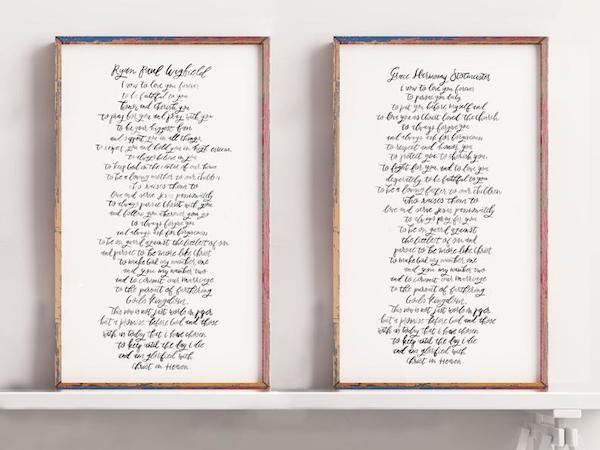 Ryan Paul Wigfield
I vow to love you forever
to be faithful to you
honor and cherish you
to pray for you and pray with you
to be your biggest fan
and support you in all things
to respect you and hold you in high esteem
to always believe in you
to keep God in the center of our home
to be a loving mother to our children
who raises them to
love and serve Jesus passionately
to always pursue Christ with you
and follow you wherever you go
to always forgive you
and always ask for forgiveness
to be on guard against the littlest of sin
and pursue to be more like Christ
to make God my number one
and you my number two
and to commit our marriage
to the pursuit of furthering
God's Kingdom.
This vow is not just words in
but a promise before God and those
with us today that I have chosen
to keep until the day I die
and am glorified with
Christ in Heaven.
Grace Harmony
I vow to love you forever
to pursue you daily
to put you before myself and
to love you as Christ loved the church
to always forgive you
and always ask for forgiveness
to respect and honor you
to protect you, to cherish you,
to fight for you and to love you
desperately, to be faithful to you
to be a loving father to our children
who raises them to
love and serve Jesus passionately
to always pray for you
to be on guard against
the littlest of sin and
pursue to be more like Christ
to make God my number one
and you my number two
and to commit our marriage
to the pursuit of furthering
God's Kingdom.
This vow is not just words in
but a promise before God and those
with us today that I have chosen
to keep until the day I die
and am glorified with
Christ in Heaven.